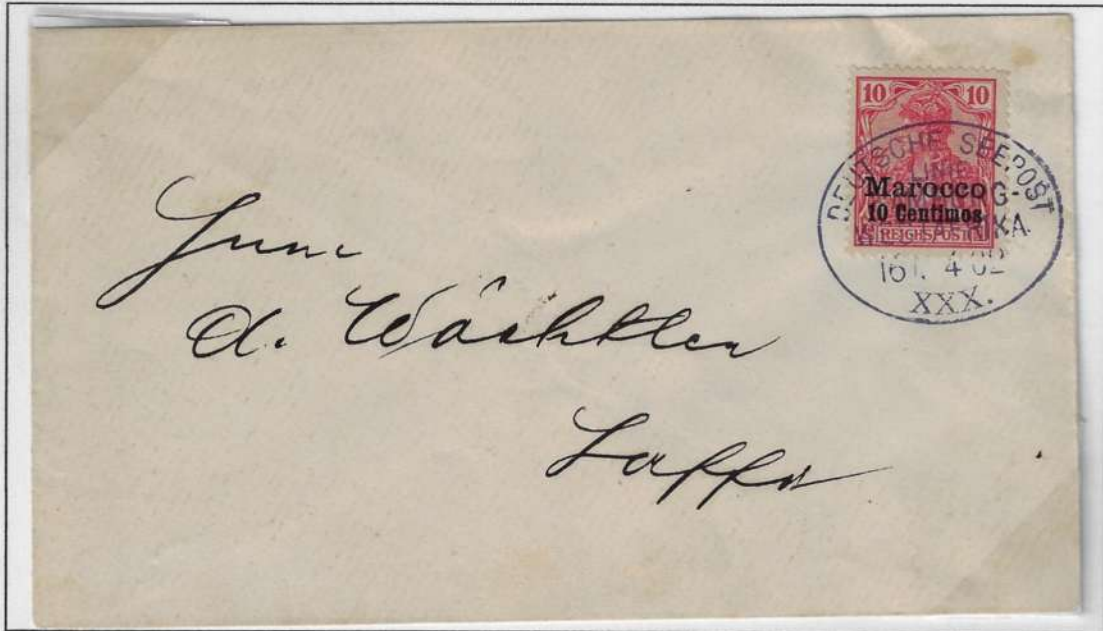 10 10
Marocco
10 Centimos
REICHSPOST
DEUTSCHE SEEPOST
LINIE
HAMBURG-
WESTAFRIKA
4 02
XXX.
Herrn
A. Wächtler
Saffi